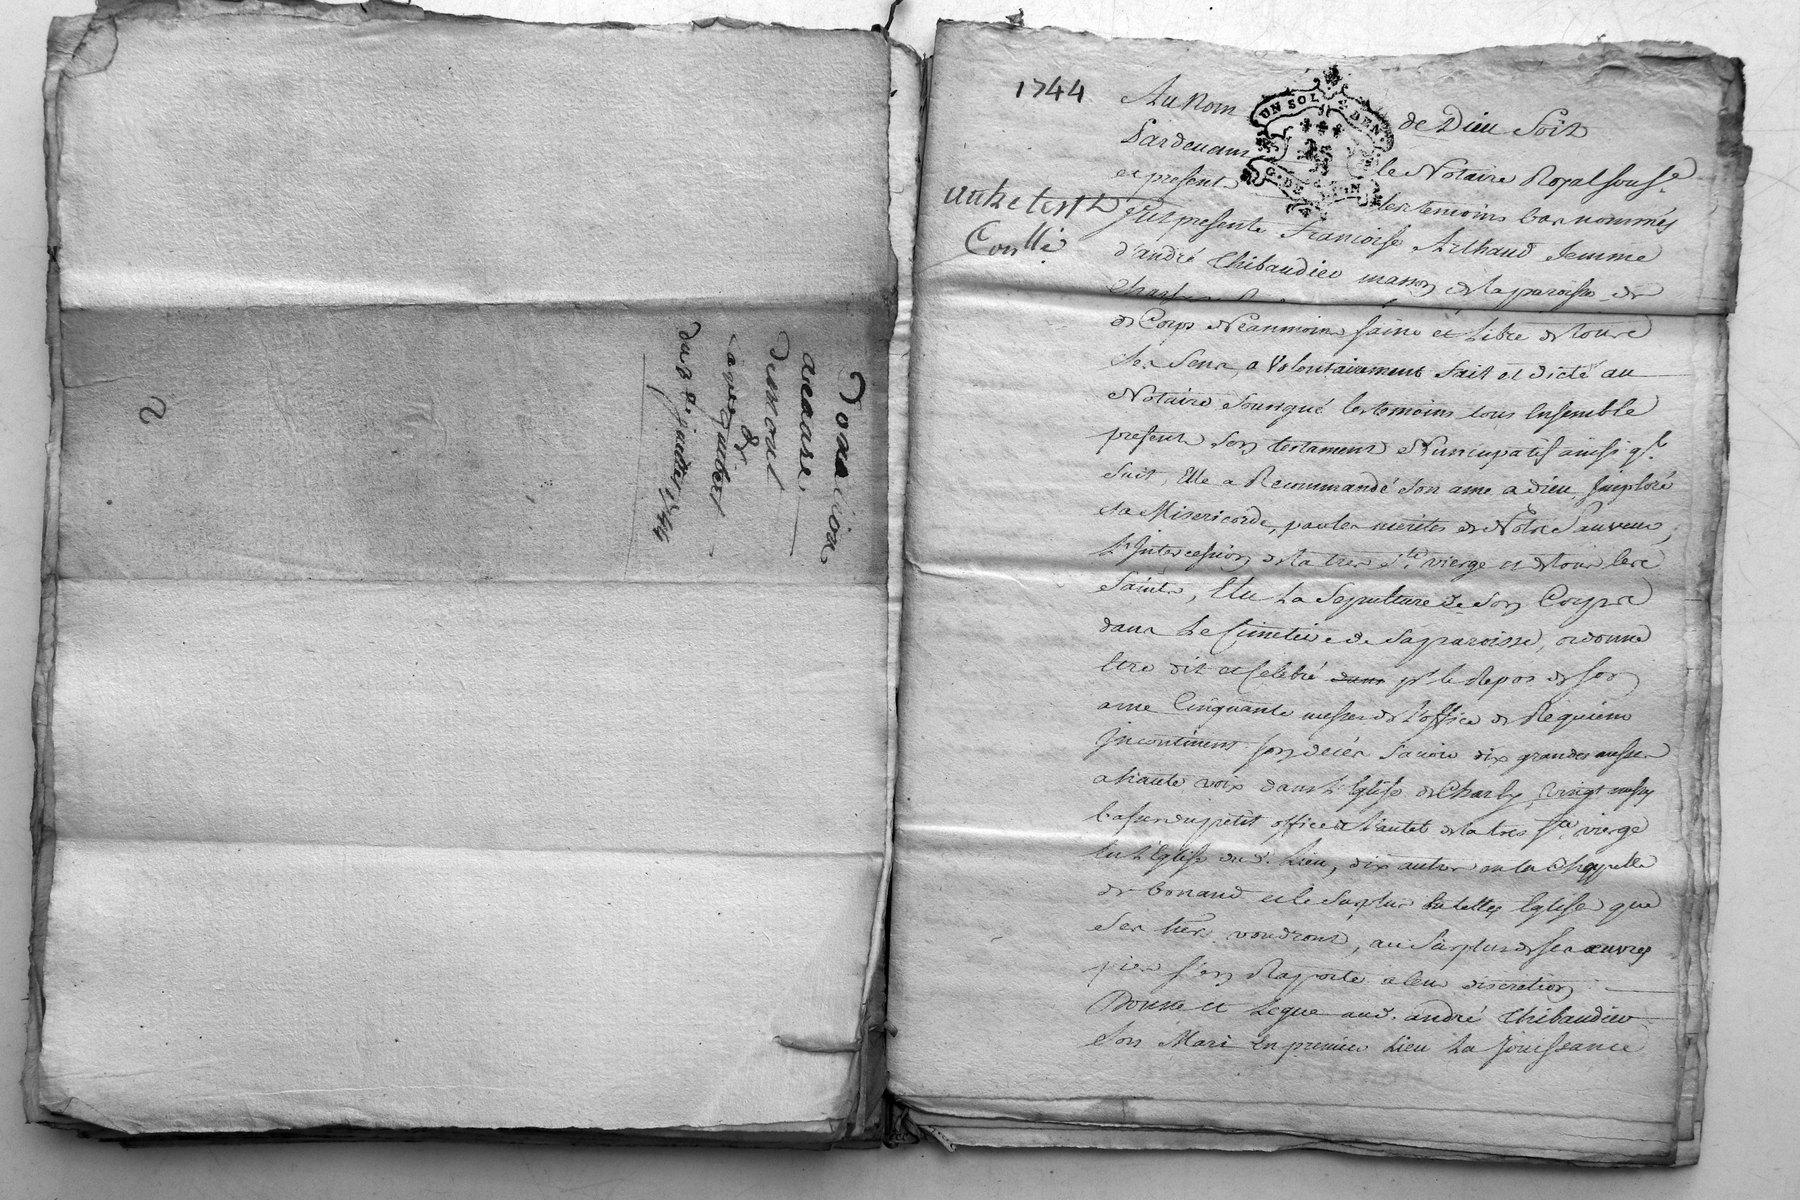 Donation
a cause
de mort
de
Jaubert
du 8e. juillet 1744
2
1744
Au Nom de Dieu Soit
Pardevant le Notaire Royal sousse.
et presents les temoins bas nommés
fut presente Francoise Arthaud femme
Conllé
d'andré Thibaudier masson de la paroisse de
de Corps Neanmoins saine et Libre de tous
Ses Sens, a Volontairement fait et dicté au
Notaire sousigné les temoins tous Ensemble
presents son testament Nuncupatif ainsi q.
suit, Elle a Recommandé son ame a dieu, Imploré
sa Misericorde, par les merites de Notre Sauveur,
L'Intercession de la tres Ste. vierge et de tous les
Saints, Elu La Sepulture de son Corps
dans Le Cimetiere de sa paroisse, ordonne
Etre dit et Celebré dans pr. le Repos de son
ame Cinquante messes de L'office de Requiem
Incontinent son decés Savoir dix grandes messes
a haute voix dans L'Eglise de Charly, Vingt messes
basses du petit office a l'autel de la tres Ste. vierge
En L'Eglise du d. Lieu, dix autres en la Chappelle
de bonand et le Surplus En telles Eglise que
Ses her. voudront, au Surplus de ses œuvres
pies s'en Rapporte a leur discretion
Donne et Legue aud. andré Thibaudier
Son Mari En premier Lieu La Jouissance